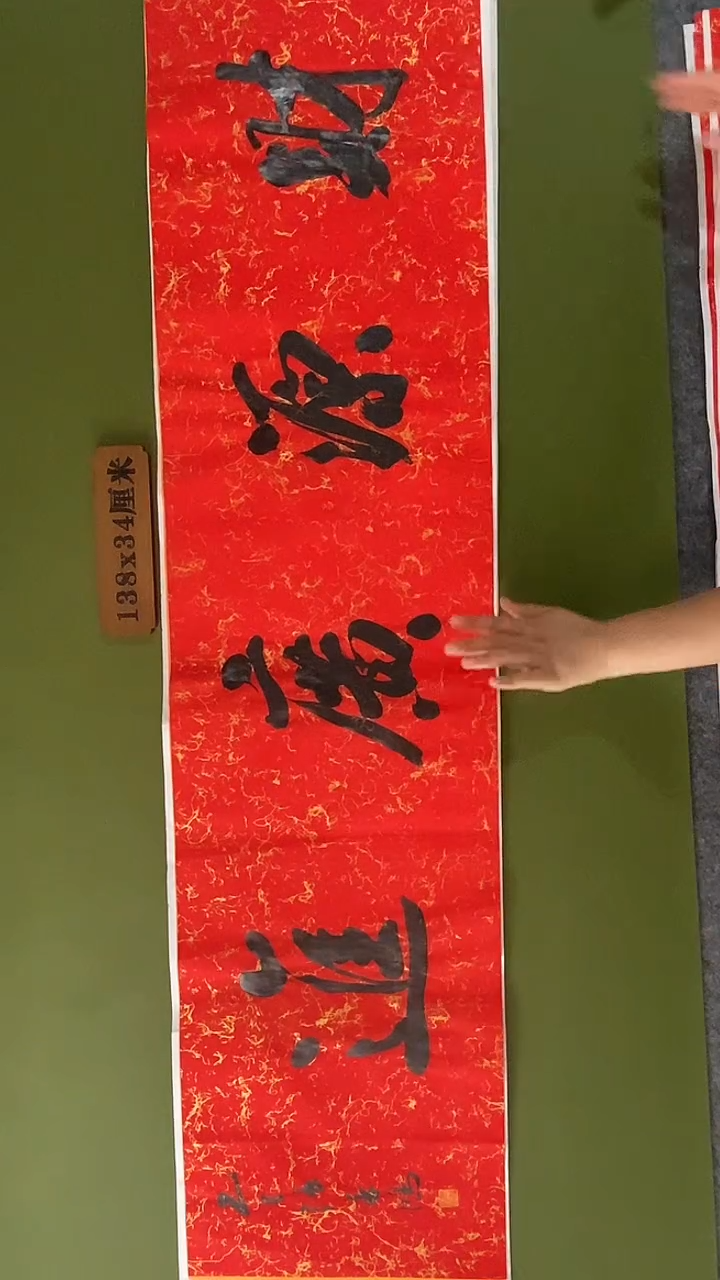 財源廣進
138x34厘米